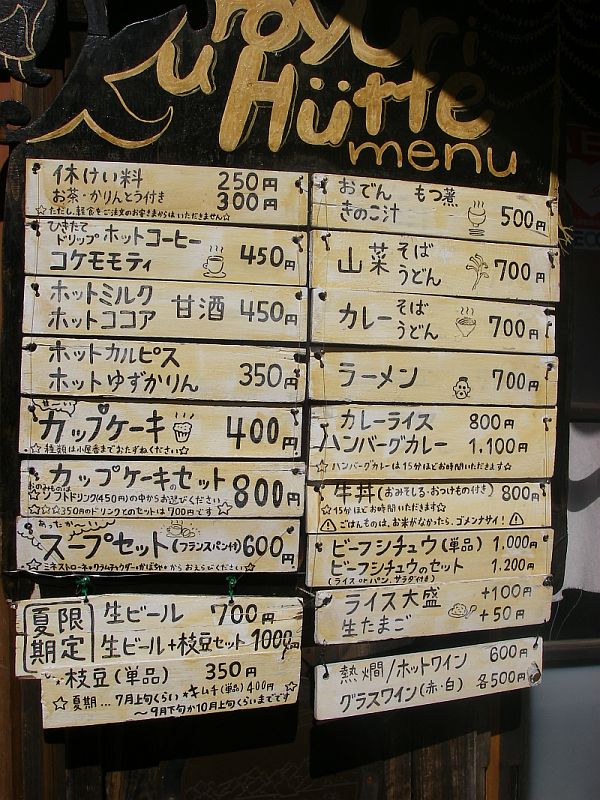 royuri
Hütte
menu
休けい料 250円
お茶・かりんとう付き 300円
☆ただし、軽食をご注文のお客さまからはいただきません☆
ひきたて
ドリップ ホットコーヒー
コケモモティ 450円
ホットミルク
ホットココア 甘酒 450円
ホットカルピス
ホットゆずかりん 350円
カップケーキ 400円
☆種類は小屋番までおたずねください☆
カップケーキのセット 800円
おのみものは
☆ソフトドリンク(450円)の中からお選びください
☆☆☆350円のドリンクとのセットは700円です☆
あったか〜い
スープセット(フランスパン付) 600円
☆ミネストローネ*クラムチャウダー*かぼちゃ*からおえらびください☆
夏限
期定
生ビール 700円
生ビール+枝豆セット 1000円
枝豆(単品) 350円
☆夏期…7月上旬くらい *キムチ(単品)400円
〜9月下旬か10月上旬くらいまでです☆
おでん もつ煮
きのこ汁 500円
山菜 そば
うどん 700円
カレー そば
うどん 700円
ラーメン 700円
カレーライス 800円
ハンバーグカレー 1.100円
☆ハンバーグカレーは15分ほどお時間いただきます☆
牛丼(おみそしる・おつけもの付き) 800円
☆15分ほどお時間いただきます☆
ごはんものは、お米がなかったら、ゴメンナサイ!
ビーフシチュウ(単品) 1.000円
ビーフシチュウのセット 1.200円
(ライス or パン、サラダ付き)
ライス大盛 +100円
生たまご +50円
熱燗/ホットワイン 600円
グラスワイン(赤・白) 各500円